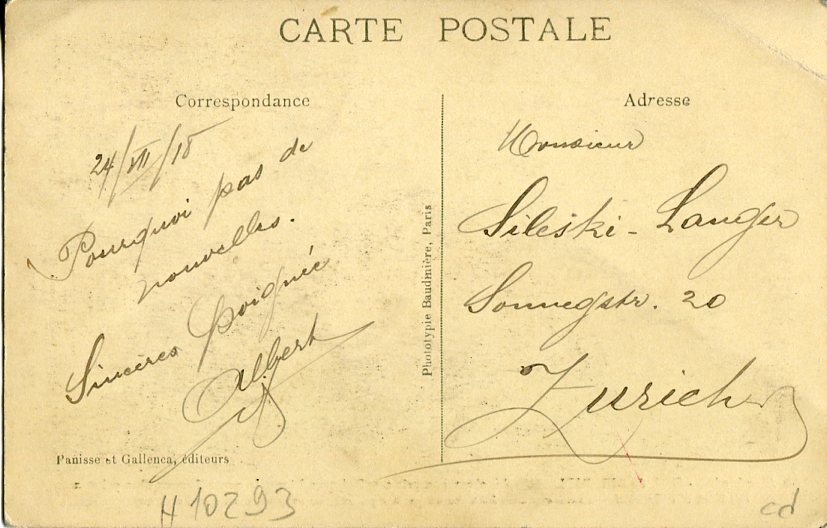 CARTE POSTALE
Correspondance
24/VII/18
Pourquoi pas de
nouvelles.
Sincères poignée
Albert
Panisse et Gallenca, éditeurs
H 10293
Phototypie Baudinière, Paris
Adresse
Monsieur
Sileski - Langer
Sonnegstr. 20
Zurich
cd